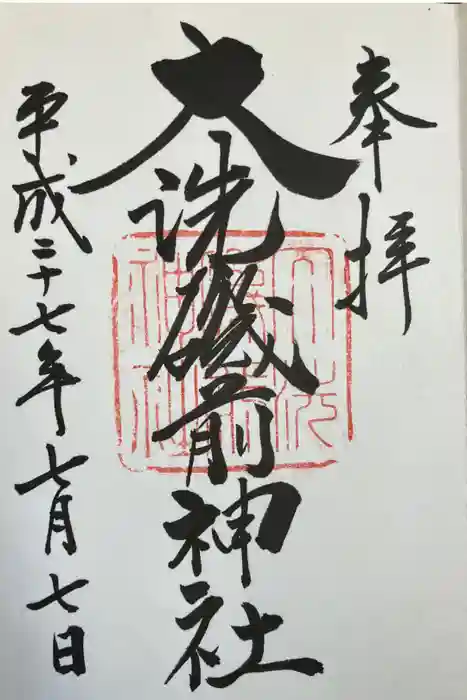 奉拝
大洗磯前神社
平成二十七年七月七日